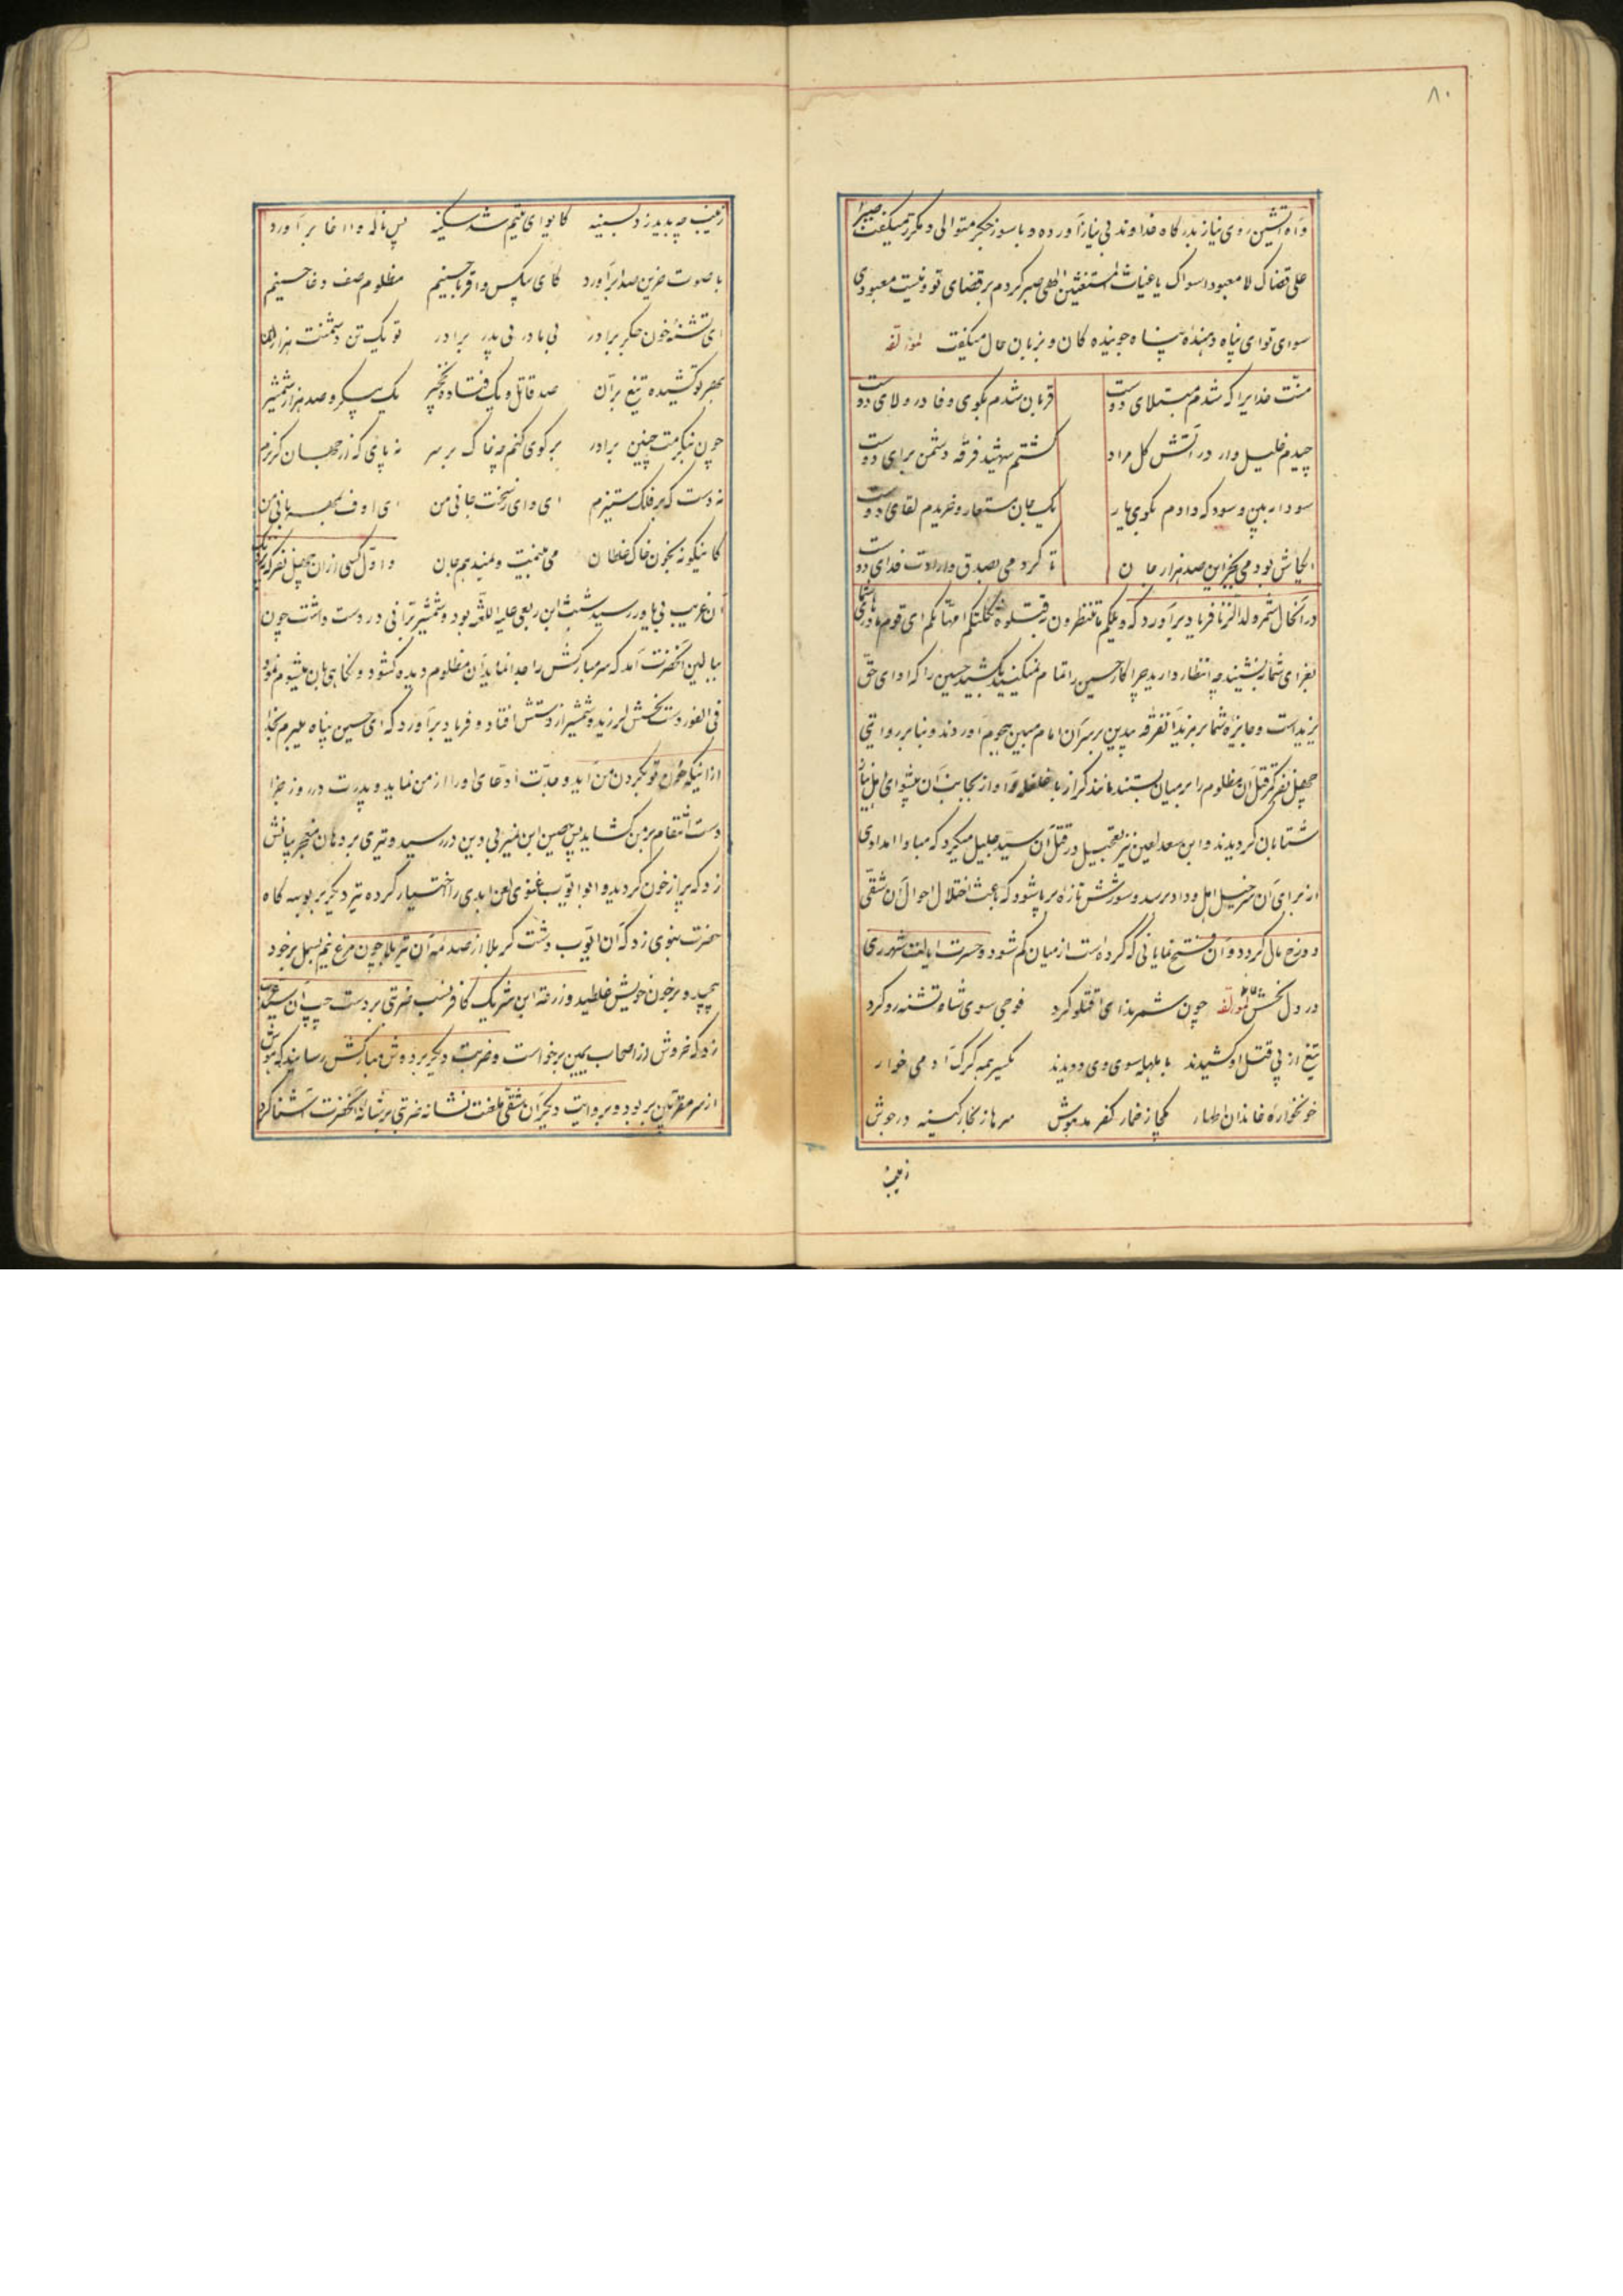 ۸۰
و آه آتشین روی نیاز بدرگاه خداوند بی نیاز آورده و با سوز جگر متوالی و مکرر میگفت صبرا
علی قضاک لا معبود سواک یا غیاث المستغیثین الهی صبر کردم بر قضای تو و نیست معبودی
سوای تو ای پناه دهنده پناه جوینده کان و بزبان حال میگفت لمؤلفه
منت خدایرا که شدم مبتلای دوست قربان شدم بکوی وفا در ولای دوست
چیدم خلیل وار در آتش گل مراد گشتم شهید فرقه دشمن برای دوست
سودا ببین و سود که دادم بکوی یار یک جان مستعار و خریدم لقای دوست
ایکاش بود می بجز این صد هزار جان تا کردمی بصدق و ارادت فدای دوست
در آنحال شمر ولد الزنا فریاد برآورد که ویلکم ما تنتظرون اقتلوه ثکلتکم امهاتکم ای قوم مادرهای شما
بعزای شما بنشیند چه انتظار دارید چرا کار حسین را تمام نمیکنید بکشید حسین را که ادای حق
یزید است و جایزه شما بر یزید آنفرقه بیدین بر سر آن امام مبین هجوم آوردند و بنا بر روایتی
چهل نفر کمر قتل آن مظلوم را بر میان بستند مانند کراز با غلغله و آواز بجانب آن پیشوای اهل نیاز
شتابان کردیدند و ابن سعد لعین نیز تعجیل در قتل آن سید جلیل میکرد که مبادا امدادی
از برای آن سرخیل اهل وداد برسد و شورش تازه برپا شود که باعث اختلال احوال آن شقی
دوزخ مآل کردد و آن فتح نمایانی که کرده است از میان کم شود و حسرت ایالت شهر ری
در دل نحسش لمؤلفه چون شمر ندای اقتلو کرد فوجی سوی شاه تشنه رو کرد
تیغ از پی قتل او کشیدند با هلهله سوی وی دویدند یکسر همه کرک آدمی خوار
خونخواره خاندان اطهار یکجا ز خمار کفر مدهوش سرها ز بخار کینه در جوش
زینب
زینب چه بدید زد بسینه کایوای یتیم شد سکینه پس ناله وا اخا برآورد
با صوت حزین صدا برآورد کای بیکس و اقربا حسینم مظلوم صف وغا حسینم
ای تشنه خون جکر برادر بی مادر بی پدر برادر تو یک تن و دشمنت هزاران
بهر تو کشیده تیغ بران صد قاتل و یک فتاده نخجیر یک پیکر و صد هزار شمشیر
چون بنکرمت چنین برادر بر کوی کنم چه خاک بر سر نه پای که از جهان کریزم
نه دست که بر فلک ستیزم ای وای ز سخت جانی من ای اوف بمهربانی من
کاینکونه بخون و خاک غلطان می بینمت و نمیدهم جان و اول کسی از آن چهل نفر که نزدیک
آن غریب بی یاور رسید شبث ابن ربعی علیه اللعنه بود و شمشیر برانی در دست داشت چون
ببالین آنحضرت آمد که سر مبارکش را جدا نماید آن مظلوم دیده کشود و نکاهی بآن میشوم نمود
فی الفور دست نحسش لرزید و شمشیر از دستش افتاد و فریاد برآورد که ای حسین پناه میبرم بخدا
از اینکه خون تو بکردن من آید و جدت ادعای او را از من نماید و پدرت در روز جزا
دست انتقام بر من کشاید پس حصین ابن نمیر بی دین در رسید و تیری بر دهان معجز بیانش
زد که پر از خون کردید و ابو ایوب غنوی لعن ابدی را اختیار کرده تیر دیکر بر بوسه کاه
حضرت نبوی زد که آن ایوب دشت کربلا از صدمه آن تیر بلا چون مرغ نیم بسمل بر خود
تپید و بر خون خویش غلطید و زرعه ابن شریک کافر نسب ضربتی بر دست چپ آن سید عرب
زد که خروش از اصحاب یمین برخواست و ضربت دیکر بر دوش مبارکش رسانید که هوش
از سر مقربان بربود و بروایت دیکر آن شقی ملعنت نشانه ضربتی بر شانه آنحضرت آشنا کرد